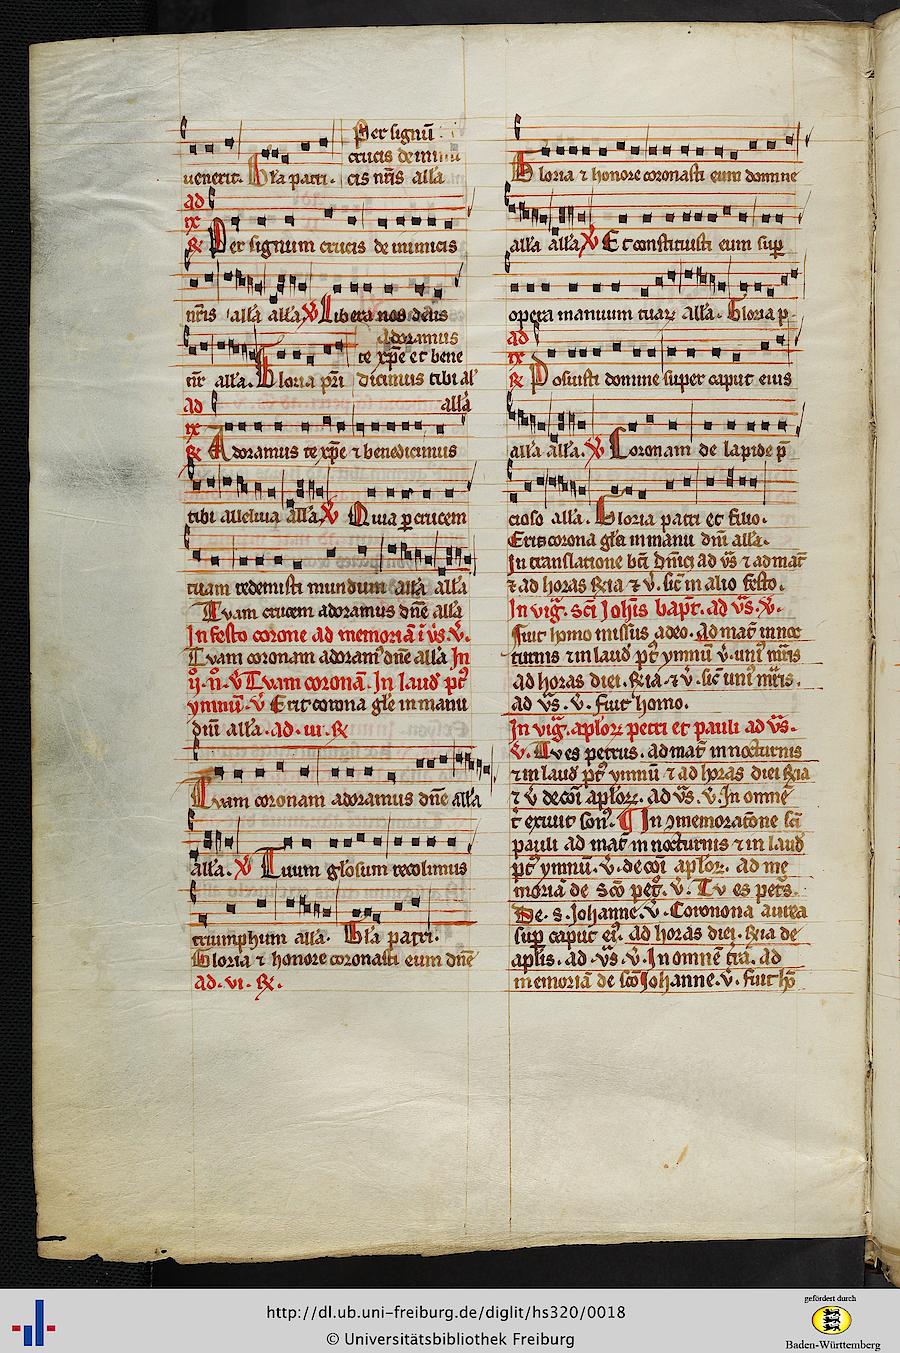 Per signū
crucis de inimi
uenerit. Gľa patri. cis nr̄is alľa
ad
ix
℟ Per signum crucis de inimicis
nr̄is alľa alľa ℣ Libera nos deus
Adoramus
te xp̄e et bene
nr̄ alľa. Gloria pr̄i dicimus tibi al
ad alľa
ix
℟ Adoramus te xp̄e ⁊ benedicimus
tibi alleluia alľa ℣ Quia ꝑ crucem
tuam redemisti mundum alľa alľa
Tuam crucem adoramus dn̄e alľa
In festo corone ad memoriā ī v̄s. v̄.
Tuam coronam adoram⁹ dn̄e alľa In
ij. n̄. v̄ Tuam coronā. In laud̄ pt̄
ymnū. v̄ Erit corona gľe in manu
dn̄i alľa. ad. iii. ℟
Tuam coronam adoramus dn̄e alľa
alľa. ℣ Tuum gľosum recolimus
triumphum alľa. Gľa patri.
Gloria ⁊ honore coronasti eum dn̄e
ad. vi. ℟.
Gloria ⁊ honore coronasti eum domine
alľa alľa ℣ Et constituisti eum suꝑ
opera manuum tuaꝝ alľa. Gloria p.
ad
ix
℟ Posuisti domine super caput eius
alľa alľa. ℣ Coronam de lapide p̄
cioso alľa. Gloria patri et filio.
Eris corona gľe in manu dn̄i alľa.
In translatione bt̄i dn̄ici ad v̄s ⁊ ad mat̄
⁊ ad horas ℟ia ⁊ v̄. sic̄ in alio festo.
In viḡ. sc̄i Joh̄is bapt̄. ad v̄s. v̄.
Fuit homo missus a deo. Ad mat̄ in noc
turnis ⁊ in laud̄ pt̄ ymnū v̄. uni⁹ mr̄is
ad horas diei. ℟ia. ⁊ v̄. sic̄ uni⁹ mr̄is.
ad v̄s. v̄. fuit homo.
In viḡ. aploꝝ petri et pauli ad v̄s.
v̄. Tu es petrus. ad mat̄ in nocturnis
⁊ in laud̄ pt̄ ymnū ⁊ ad horas diei ℟ia
⁊ v̄ de cōi aploꝝ. ad v̄s. v̄. In omnē
t̄ exiuit son⁹. ¶ In ꝯmemoratōne sc̄i
pauli ad mat̄ in nocturnis ⁊ in laud̄
pt̄ ymnū. v̄. de cōi aploꝝ. ad me
moriā de sc̄o pet̄. v̄. Tu es pet⁹s.
De. s. Johanne. v̄. Coronona aurea
suꝑ caput ei⁹. ad horas diei. ℟ia de
aplis. ad. v̄s. v̄. In omnē trā. ad
memoriā de sc̄o Johanne. v̄. fuit hō
http://dl.ub.uni-freiburg.de/diglit/hs320/0018
© Universitätsbibliothek Freiburg
gefördert durch
Baden-Württemberg